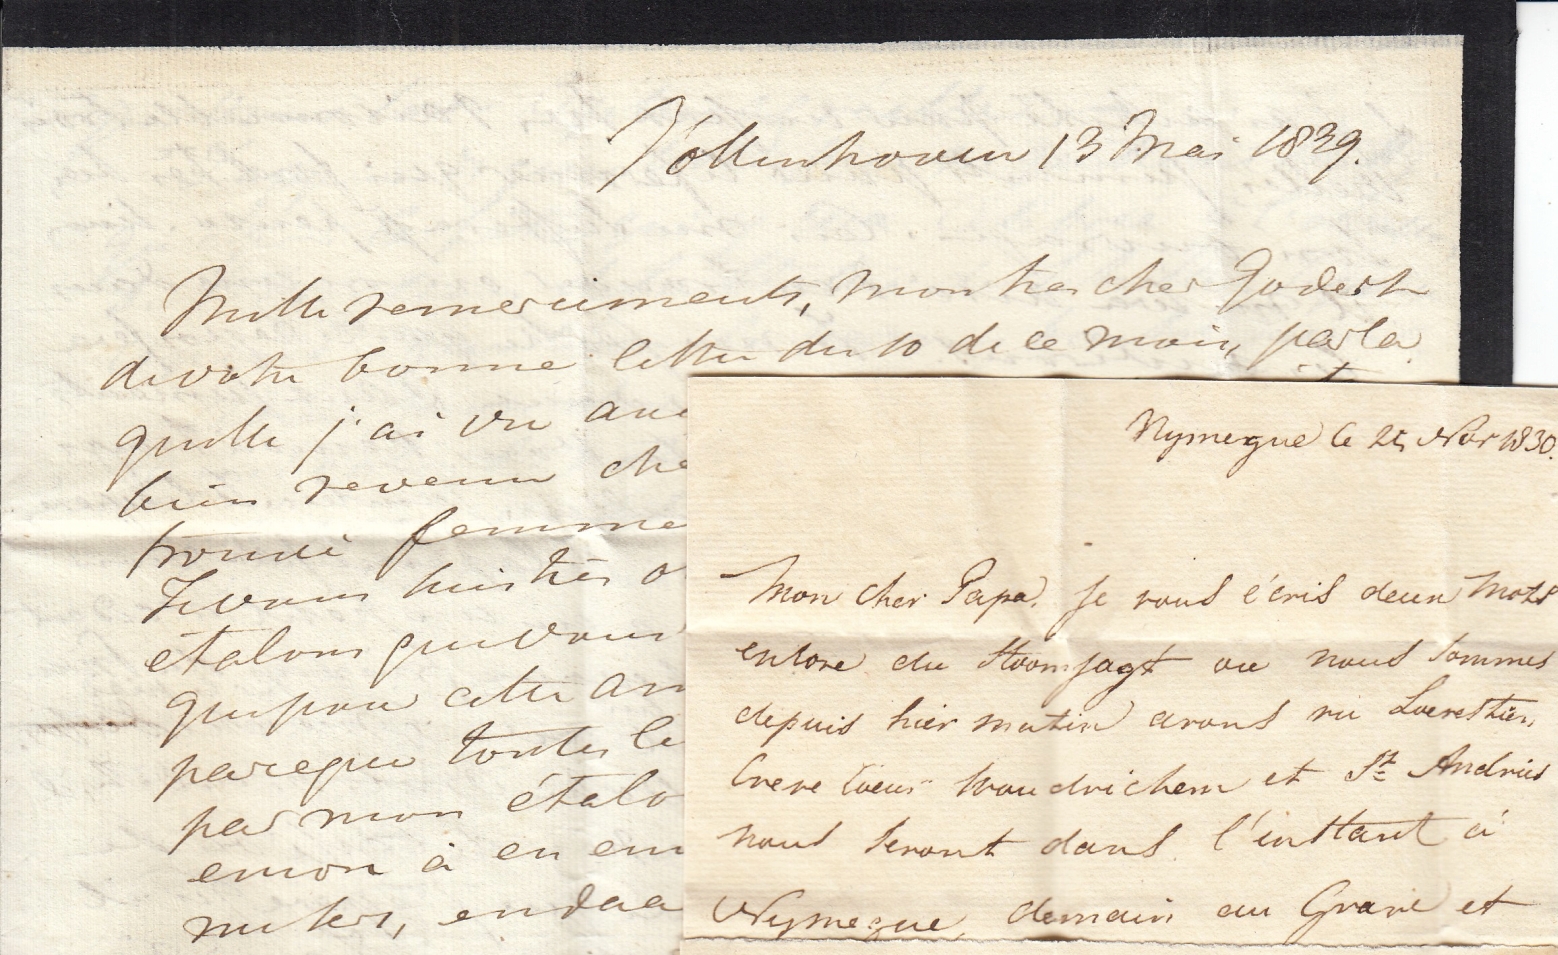 Vollenhoven 13 Mai 1839.
Mille remerciments, mon tres cher Godert
de votre bonne lettre du 10 de ce mois, par la
quelle j'ai vu avec
bien revenu che
trouvé femme
étalons que vous
que pour cette an
parceque toutes le
par mon étalo
encor à en
Nymegue le 25 Nov 1830.
Mon cher Papa. Je vous écris deux mots
encore du Stoomjagt ou nous sommes
depuis hier matin avons vu Loevestein
Creve Coeur Woudrichem et St Andries
nous seront dans l'instant à
Nymegue, demain au Grave et